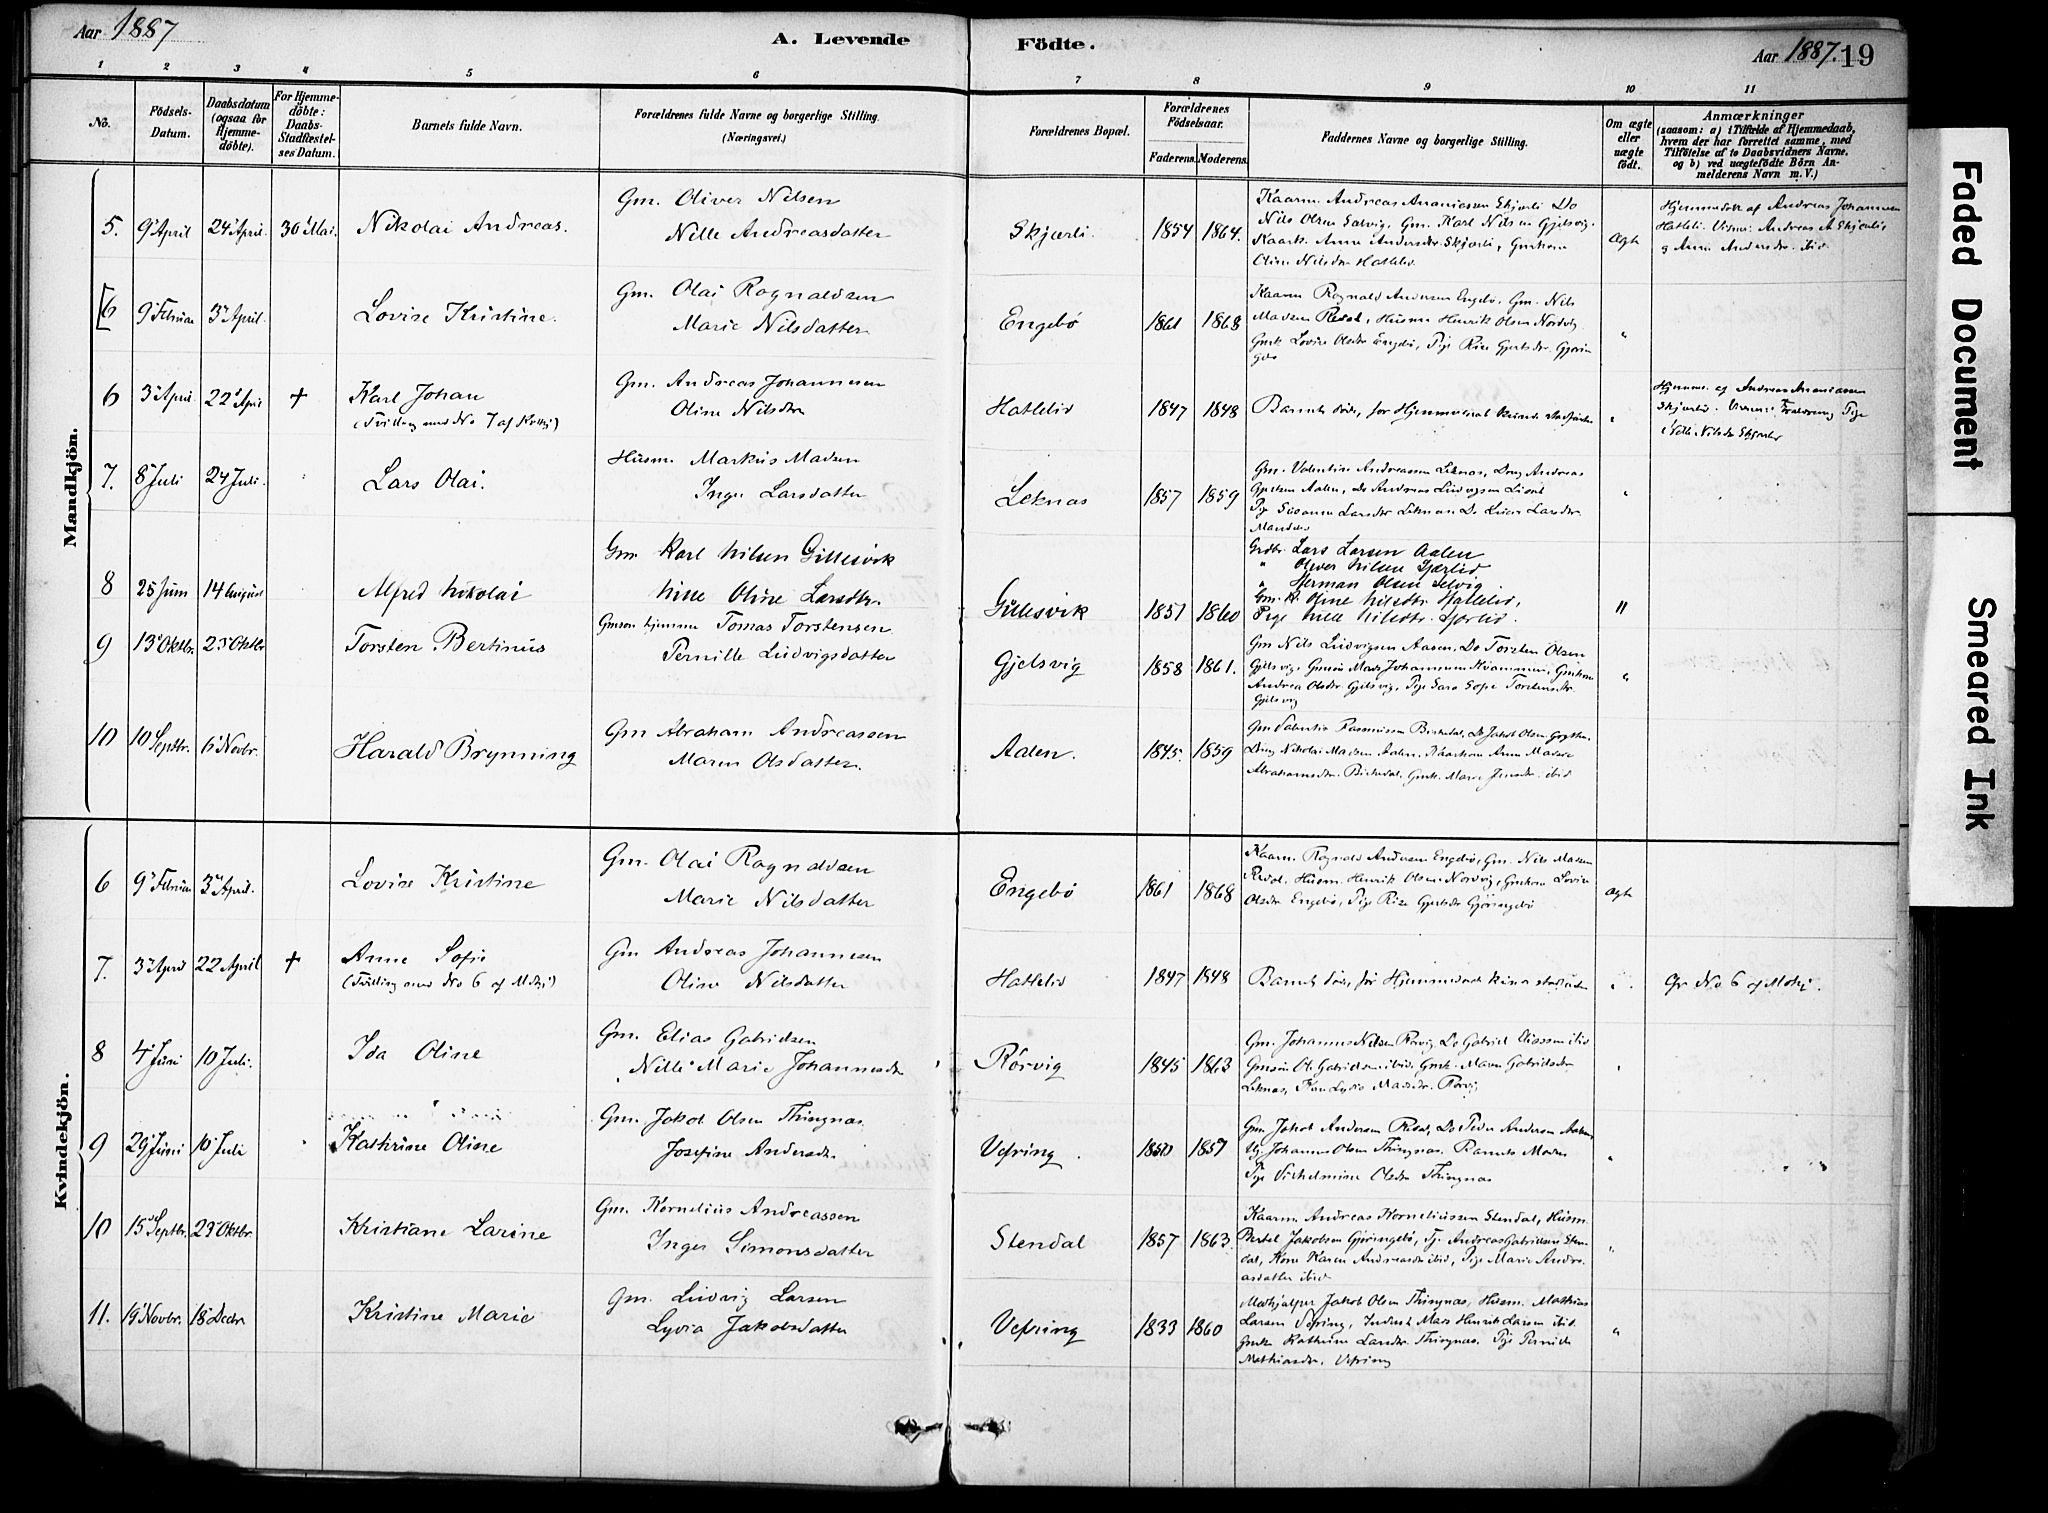 Aar 1887
A. Levende
Födte.
Aar 1887. 19
1 2 3 4 5 6 7 8 9 10 11
No.
Födsels-Datum.
Daabsdatum (ogsaa for Hjemme-döbte).
For Hjemme-döbte: Daabs-Stadfæstel-ses Datum.
Barnets fulde Navn.
Forældrenes fulde Navne og borgerlige Stilling.
(Næringsvei.)
Forældrenes Bopæl.
Forældrenes Födselsaar.
Faderens. Moderens.
Faddernes Navne og borgerlige Stilling.
Om ægte eller uægte födt.
Anmærkninger
(saasom: a) i Tilfælde af Hjemmedaab, hvem der har forrettet samme, med Tilföielse af to Daabsvidners Navne, og b) ved uægtefödte Börn An-melderens Navn m. V.)
Mandkjön.
5. 9 April 24 April. 30 Mai. Nikolai Andreas. Gm. Oliver Nilsen
Nille Andreasdatter
Skjærli. 1854 1864.
Kaarm. Andreas Ananiassen Skjærli Do
Nils Olsen Salvig, Gm. Karl Nilsen Gjelsvig.
Kaark. Anne Andersdtr Skjærli, Gmkone
Oline Nilsdtr Hatlelid
Ægte
Hjemmedøbt af Andreas Johannesen
Hatleli. Andreas A Skjærli
og Anne Andersdtr. ibid
6 9 Februar 3 April. Lovise Kristine. Gm. Olai Ragnaldsen
Marie Nilsdatter
Engebö 1861 1868
Kaarm Ragnald Andersen Engebö. Gm. Nils
Madsen Redal, Husm Henrik Olsen Nordvig
Gmk Lovise Olsdtr Engebö, Pige Rise Gjertsdtr. Gjörin
gebö
"
6 3 April 22 April † Karl Johan
(Tvilling med No 7 af Kvkj)
Gm. Andreas Johannesen
Oline Nilsdtr
Hatlelid 1847 1848 Barnet døde, før Hjemmedaab kunde stadfæstes "
Hjemmed. af Andreas Ananiassen
Skjærlid. Pige
Nille Nilsdtr Skjærli
7. 8 Juli 24 Juli. Lars Olai. Husm. Markus Madsen
Inger Larsdatter
Leknas 1857 1859
Gm. Valentin Andreassen Leknas, Ung Andreas
Gjertsen Aalen, do Andreas Ludvigsen
Pige Susanne Larsdtr Leknas Do Larsdtr.
"
8 25 Juni 14 August Alfred Nikolai Gm. Karl Nilsen Gillesvik
Nille Oline Larsdtr.
Gillesvik 1851 1860
Grdbr. Lars Larsen Aalen
" Oliver Nilsen Sjærlid
" Herman Olsen Selvig.
Gm. K. Oline Nilsdtr. Hatlelid,
Pige Nille Nilsdtr. Sjærlid.
"
9 13 Oktbr. 23 Oktbr Torsten Bertinus Gmsøn hjemme Tomas Torstensen
Pernille Ludvigsdatter
Gjelsvig 1858 1861.
Gm Nils Ludvigsen Aasen, Do Torsten Olsen
Gjelsvig, Gmsøn Mads Johannessen Kvammen, Gmkone
Andrea Olsdtr. Gjelsvig, Pige Sara Sofie Torstensdtr.
Gjelsvig
"
10 10 Septbr. 6 Novbr. Harald Brynning Gm Abraham Andreassen
Maren Olsdatter.
Aalen. 1845. 1859
Gm Valentin Rasmussen Birkedal, Do Jakob Olsen
Ung Nikolai Madsen Aalen, Kaarkone Anne Marie
Abrahamsdtr. Birkedal. Gmk. Marie ibid
Kvindekjön.
6 9 Februar 3 April. Lovise Kristine Gm. Olai Ragnaldsen
Marie Nilsdatter
Engebö 1861 1868
Kaarm. Ragnald Andersen Engebö, Gm. Nils Madsen
Redal. Husm. Henrik Olsen Nordvig, Gmkone Lovise
Olsdtr Engebö, Pige Rise Gjertsdtr Gjöringebö
Ægte
7. 3 April 22 April † Anne Sofie
(Tvilling med No 6 af Mdkj)
Gm Andreas Johannesen
Oline Nilsdatter
Hatlelid 1847 1848 Barnet døde, før Hjemmedaab kunde stadfæstes " Cfr No 6 af Mdkj.
8 4 Juni 10 Juli. Ida Oline Gm. Elias Gabrielsen
Nille Marie Johannesdtr
Rörvig 1845 1863
Gm. Johannes Nilsen Rörvig Do Gabriel Eliassen ibid
Gmsøn Ole Gabrielsen ibid, Gmk. Maren Gabrielsdtr
Leknas, Kone Lydia Madsdtr. Rörvig
9 29 Juni 10 Juli Kathrine Oline Gm. Jakob Olsen Thingnas
Josefine Andersdtr.
Vefring. 1850 1857
Gm Jakob Andersen Redal, Do Peder Andersen Aalen,
Ug. Johannes Olsen Thingnas. Barnets Moder
Pige Vilhelmine Olsdtr Thingnas
"
10 15 Septbr. 23 Oktbr. Kristiane Larine Gm. Kornelius Andreassen
Inger Simonsdatter
Stendal 1857 1863
Kaarm. Andreas Korneliussen Stendal, Husm.
Bertel Jakobsen Gjöringebö, Andreas Gabrielsen Sten
dal, Kone Karen Andreasdtr ibid, Pige Marie Andre
asdatter ibid
"
11. 19 Novbr. 18 Decbr Kristine Marie Gm. Ludvig Larsen
Lydia Jakobsdatter
Vefring 1833 1860
Jakob Olsen Thingnas, Husm. Mathias
Larsen Vefring, Mads Henrik Larsen ibid.
Gmk Kathrine Larsdtr. Thingnas. Pige Pernille
Mathiasdtr. Vefring
"
Faded Document
Smeared Ink